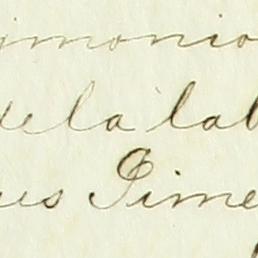 imonio
de la lab
ues Gime